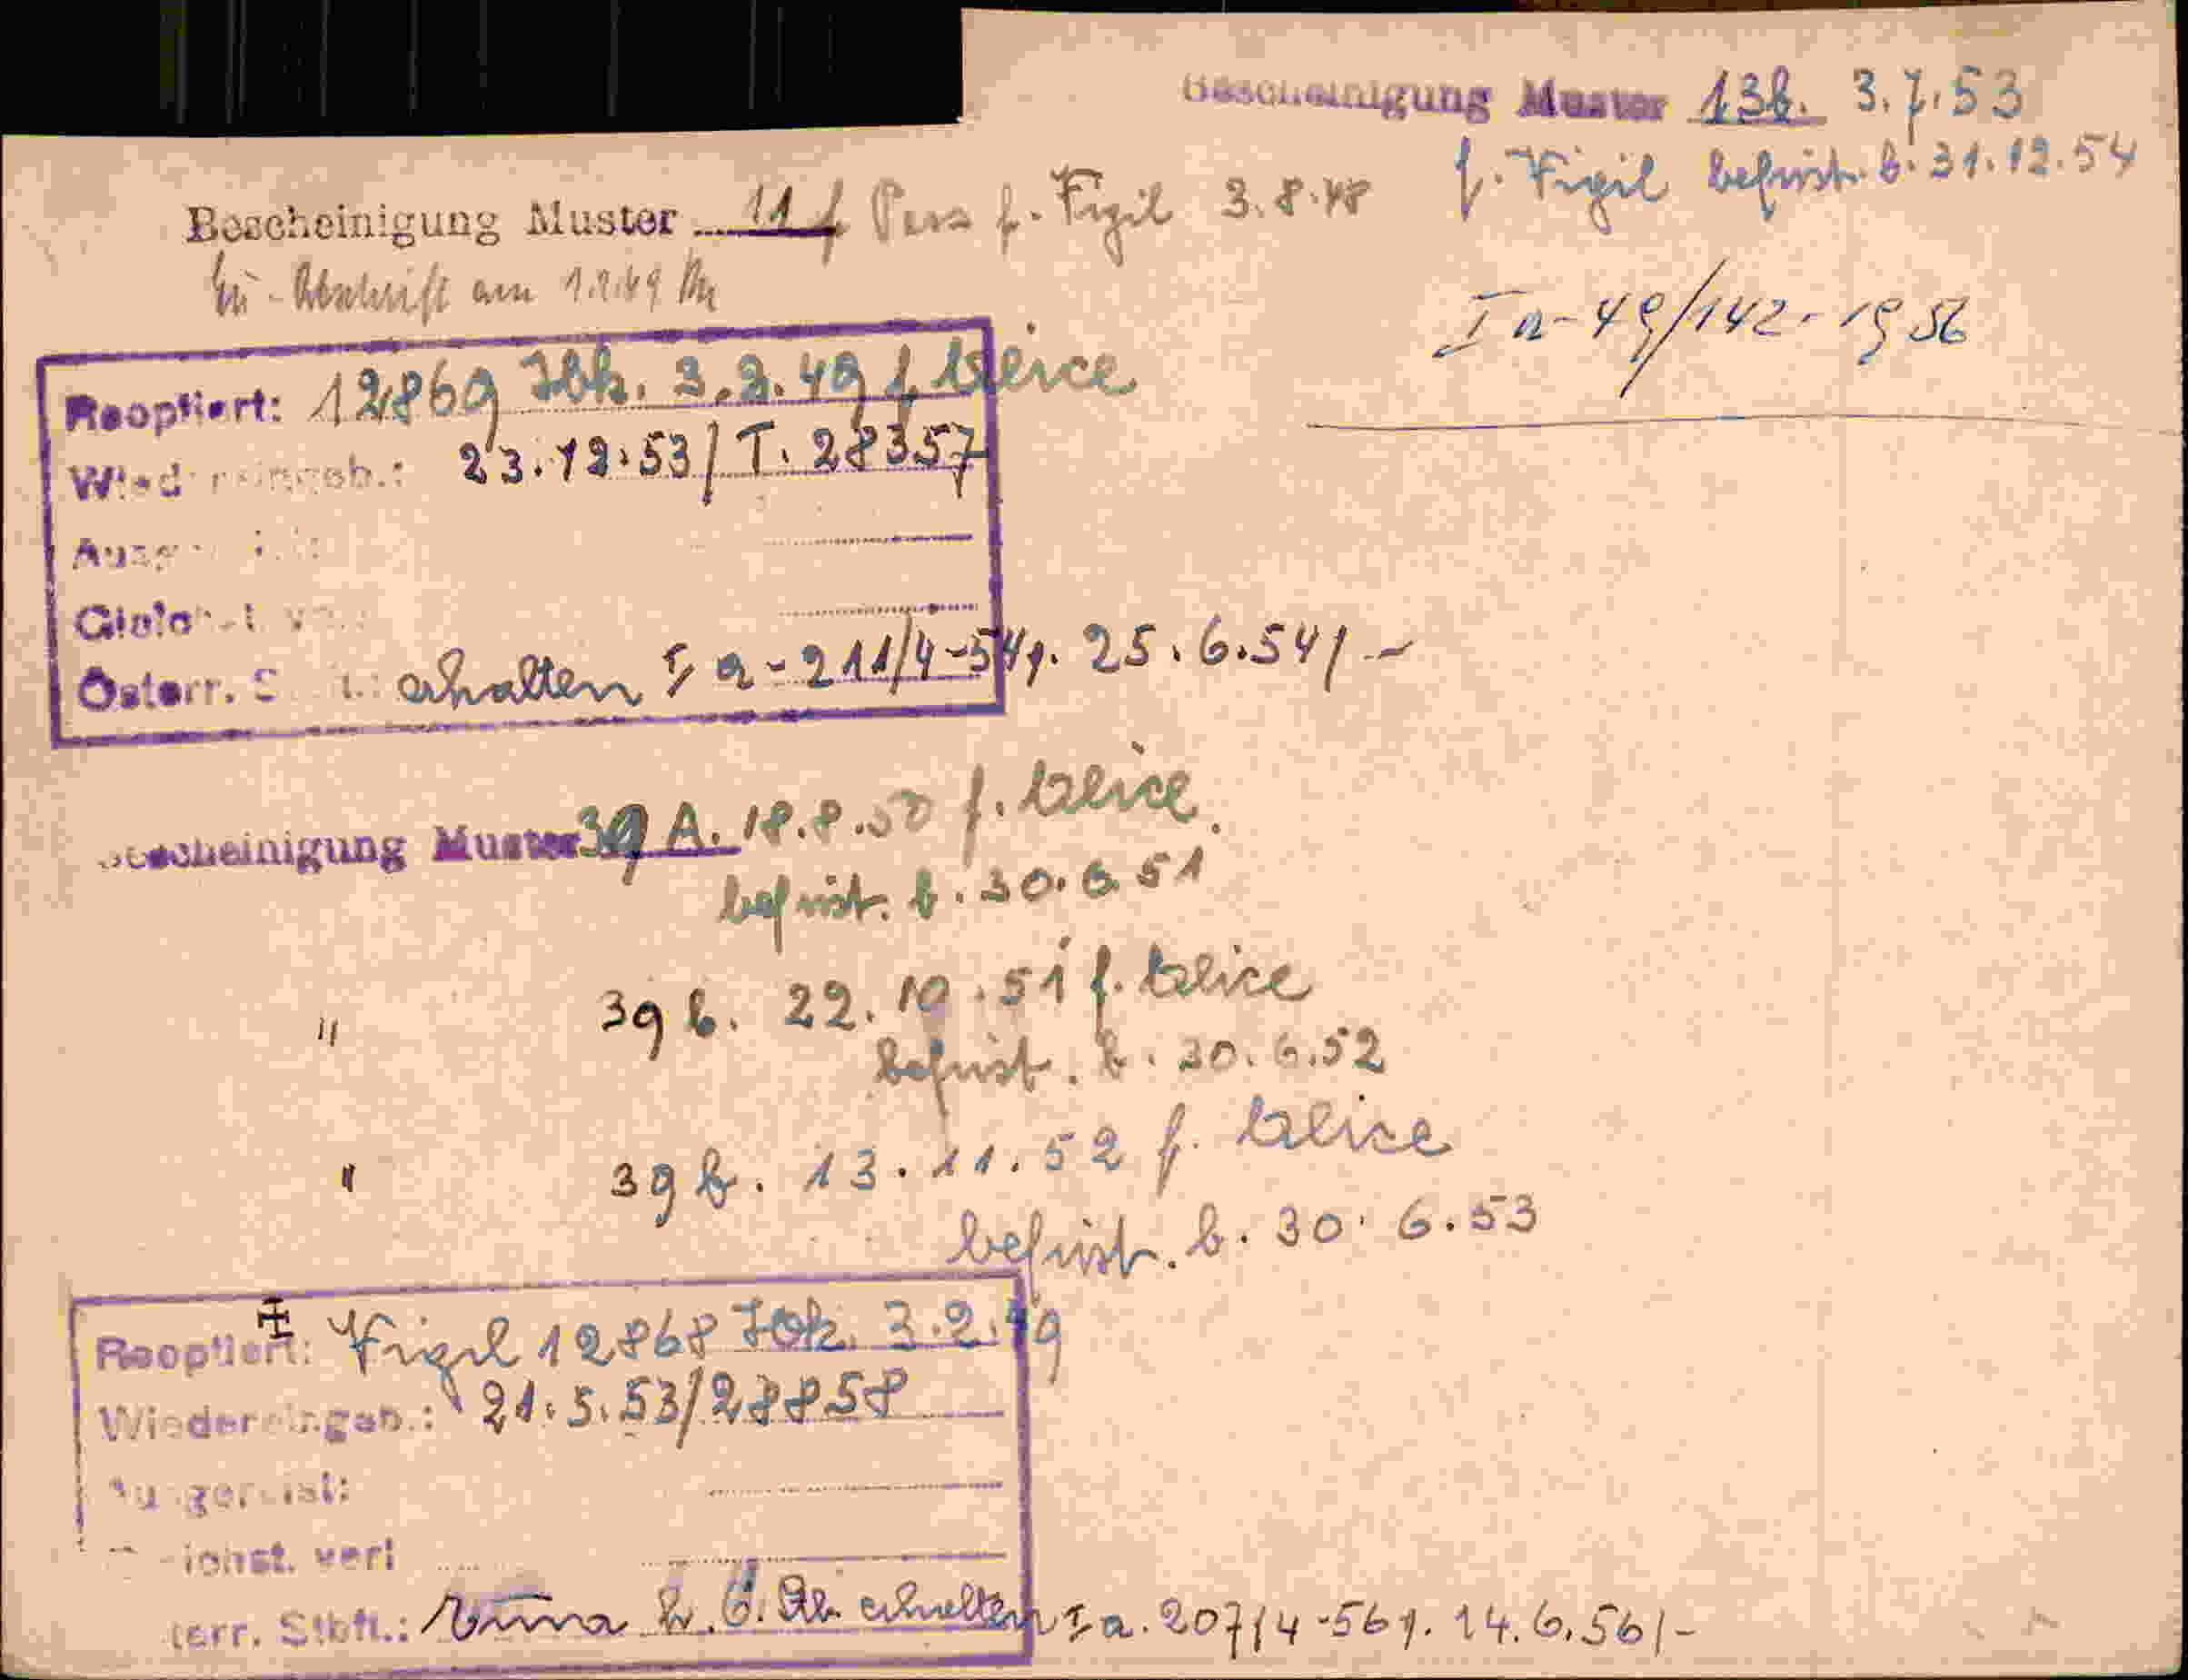 Bescheinigung Muster 13b. 3.7.53
f. Vigil befrist. b. 31.12.54
Bescheinigung Muster 11 f Pers f. Vigil 3.8.48
Abschrift am
I a-49/142-1956
Reoptiert: 12869 Jbk. 3.2.49 f. Alice
Wiedereingeb.: 23.12.53/T. 28357
Österr. erhalten I a-211/4-54 v. 25.6.54/-
Bescheinigung Muster 39 A. 18.8.50 f. Alice
befrist. b. 30.6.51
" 39 b. 22.10.51 f. Alice
befrist. b. 30.6.52
" 39 b. 13.11.52 f. Alice
befrist. b. 30.6.53
Reoptiert: Vigil 12868 Jbk. 3.2.49
Wiedereingeb.: 21.5.53/28858
Ausgereist:
ichst. verl
terr. Stbft.: Anna erhalten I a. 207/4-56 v. 14.6.56/-